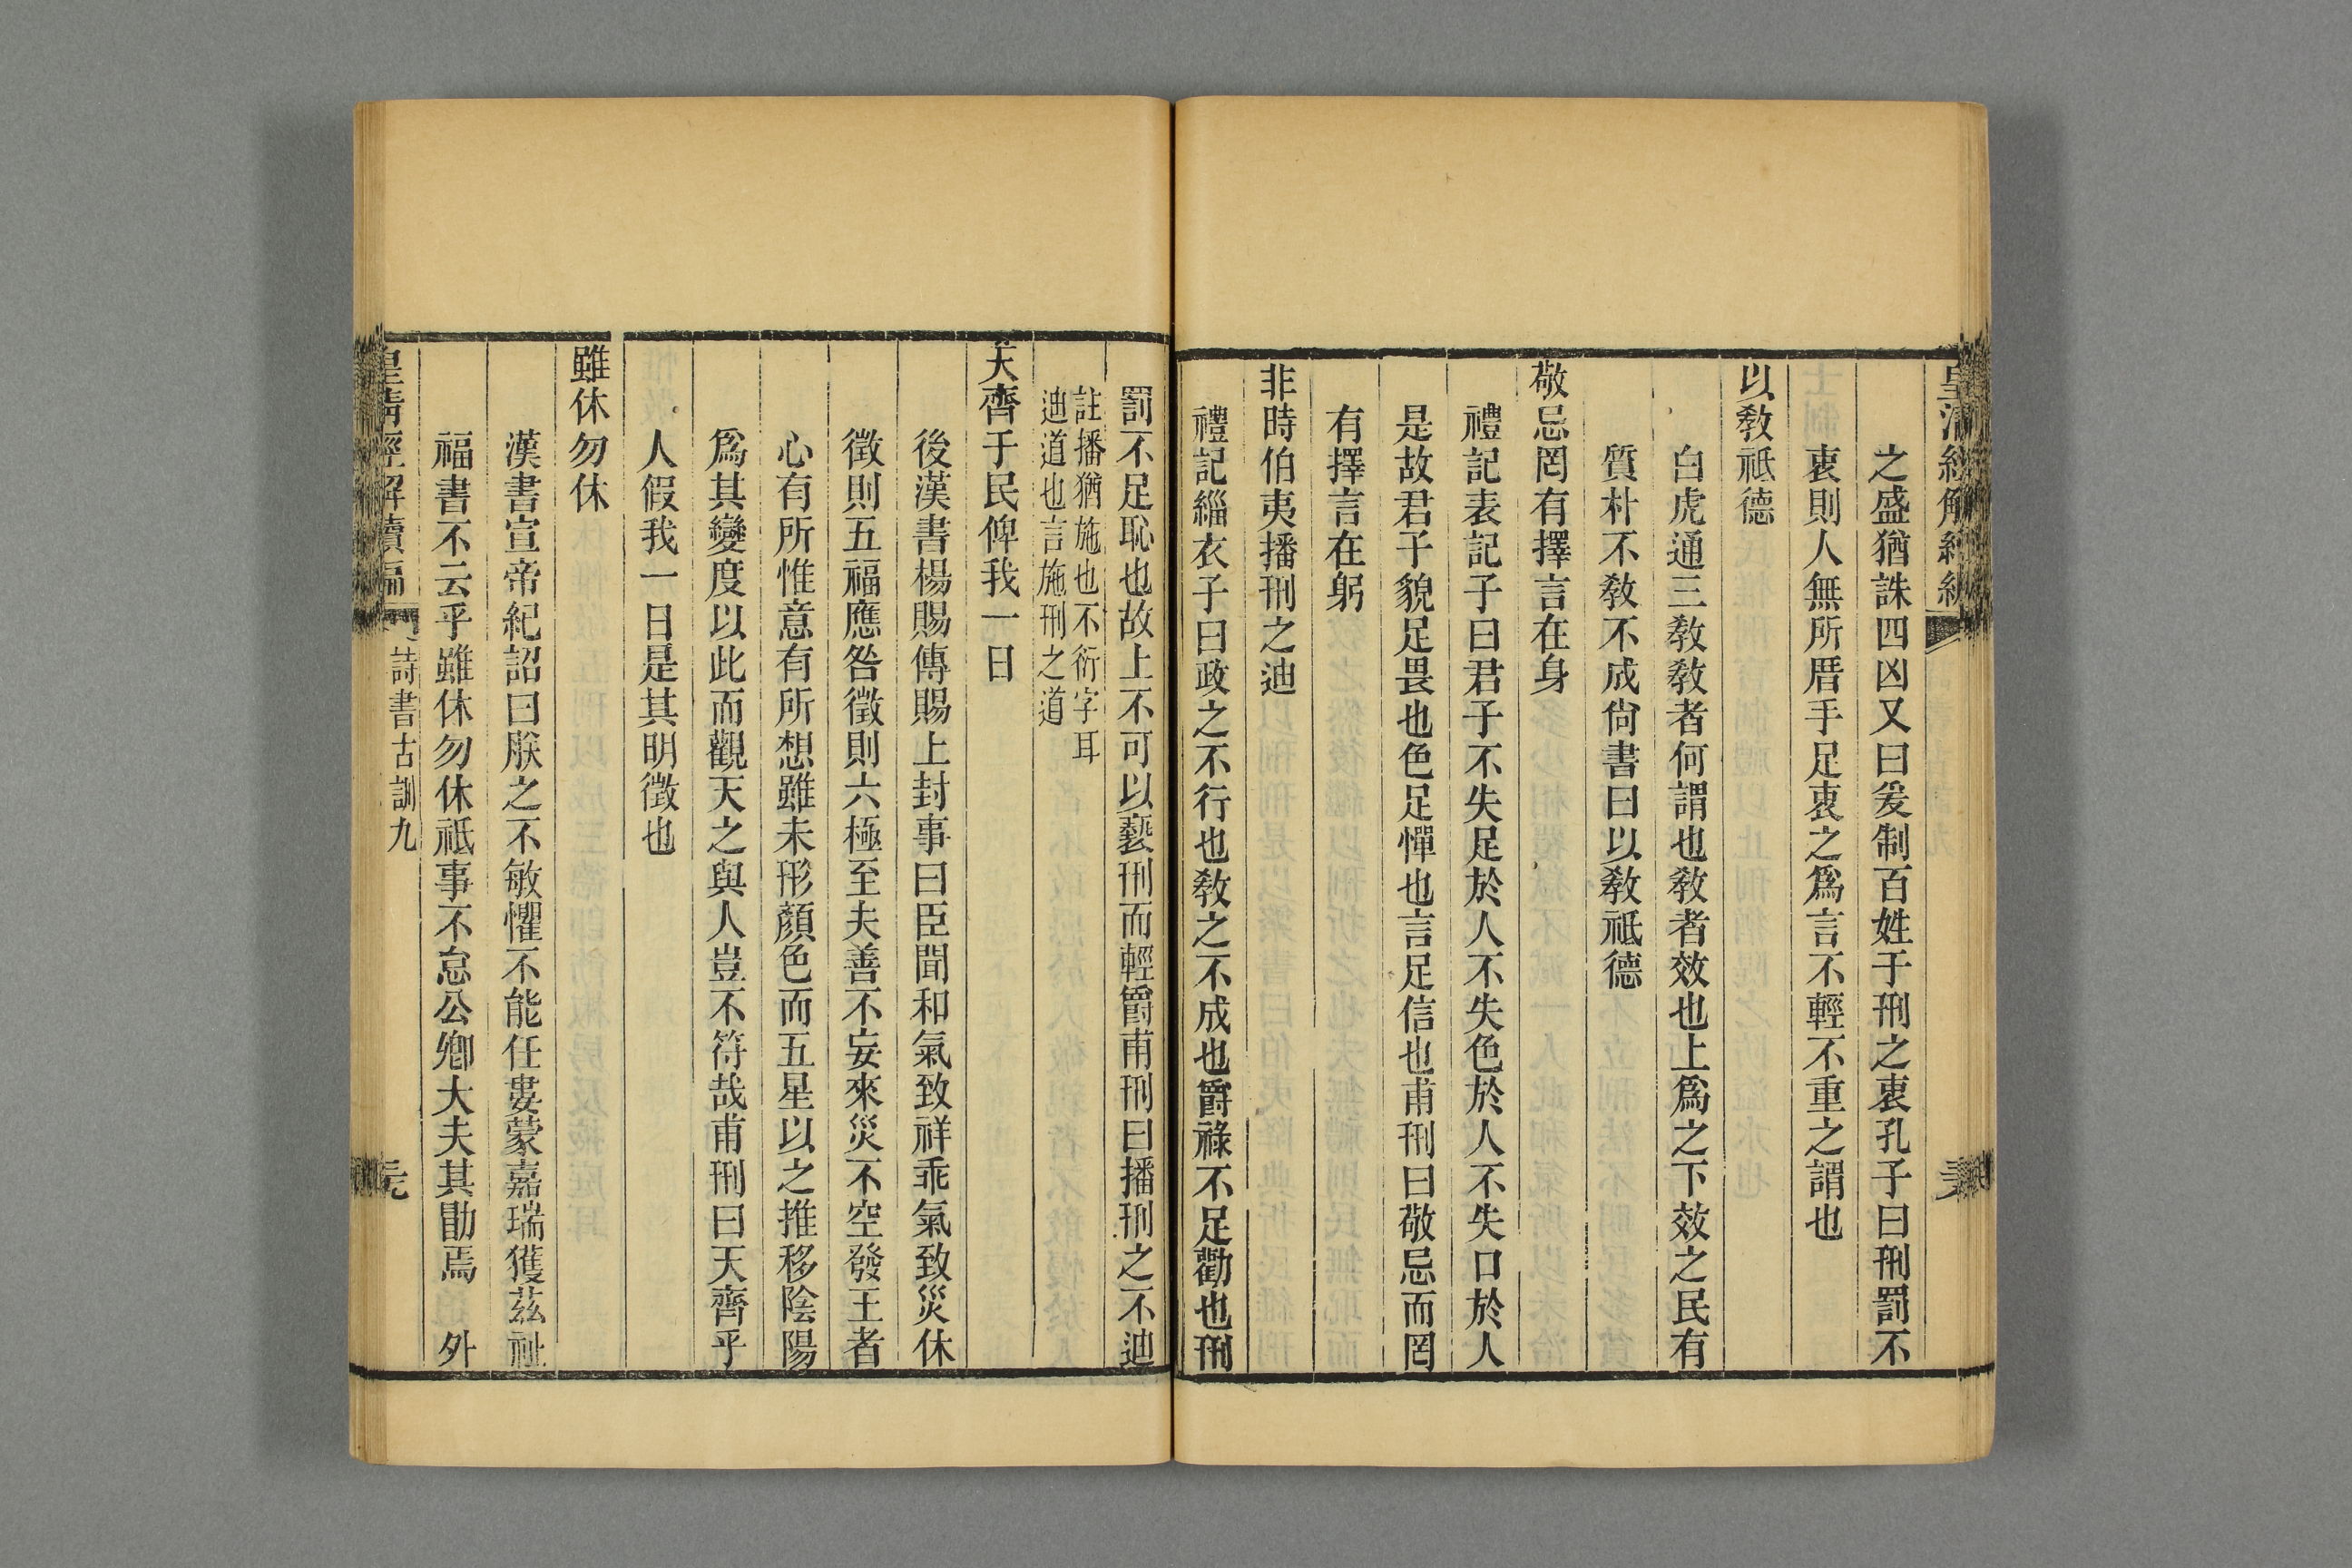 皇清經解續編
之盛猶誅四凶又曰爰制百姓于刑之衷孔子曰刑罰不
衷則人無所厝手足衷之爲言不輕不重之謂也
以敎祗德
白虎通三敎敎者何謂也敎者效也上爲之下效之民有
質朴不敎不成尙書曰以敎祗德
敬忌罔有擇言在身
禮記表記子曰君子不失足於人不失色於人不失口於人
是故君子貌足畏也色足憚也言足信也甫刑曰敬忌而罔
有擇言在躬
非時伯夷播刑之迪
禮記緇衣子曰政之不行也敎之不成也爵祿不足勸也刑
罰不足恥也故上不可以褻刑而輕爵甫刑曰播刑之不迪
註播猶施也不衍字耳
迪道也言施刑之道
天齊于民俾我一日
後漢書楊賜傳賜上封事曰臣聞和氣致祥乖氣致災休
徵則五福應咎徵則六極至夫善不妄來災不空發王者
心有所惟意有所想雖未形顏色而五星以之推移陰陽
爲其變度以此而觀天之與人豈不符哉甫刑曰天齊乎
人假我一日是其明徵也
雖休勿休
漢書宣帝紀詔曰朕之不敏懼不能任婁蒙嘉瑞獲茲祉
福書不云乎雖休勿休祗事不怠公卿大夫其勖焉 外
皇清經解續編 詩書古訓九